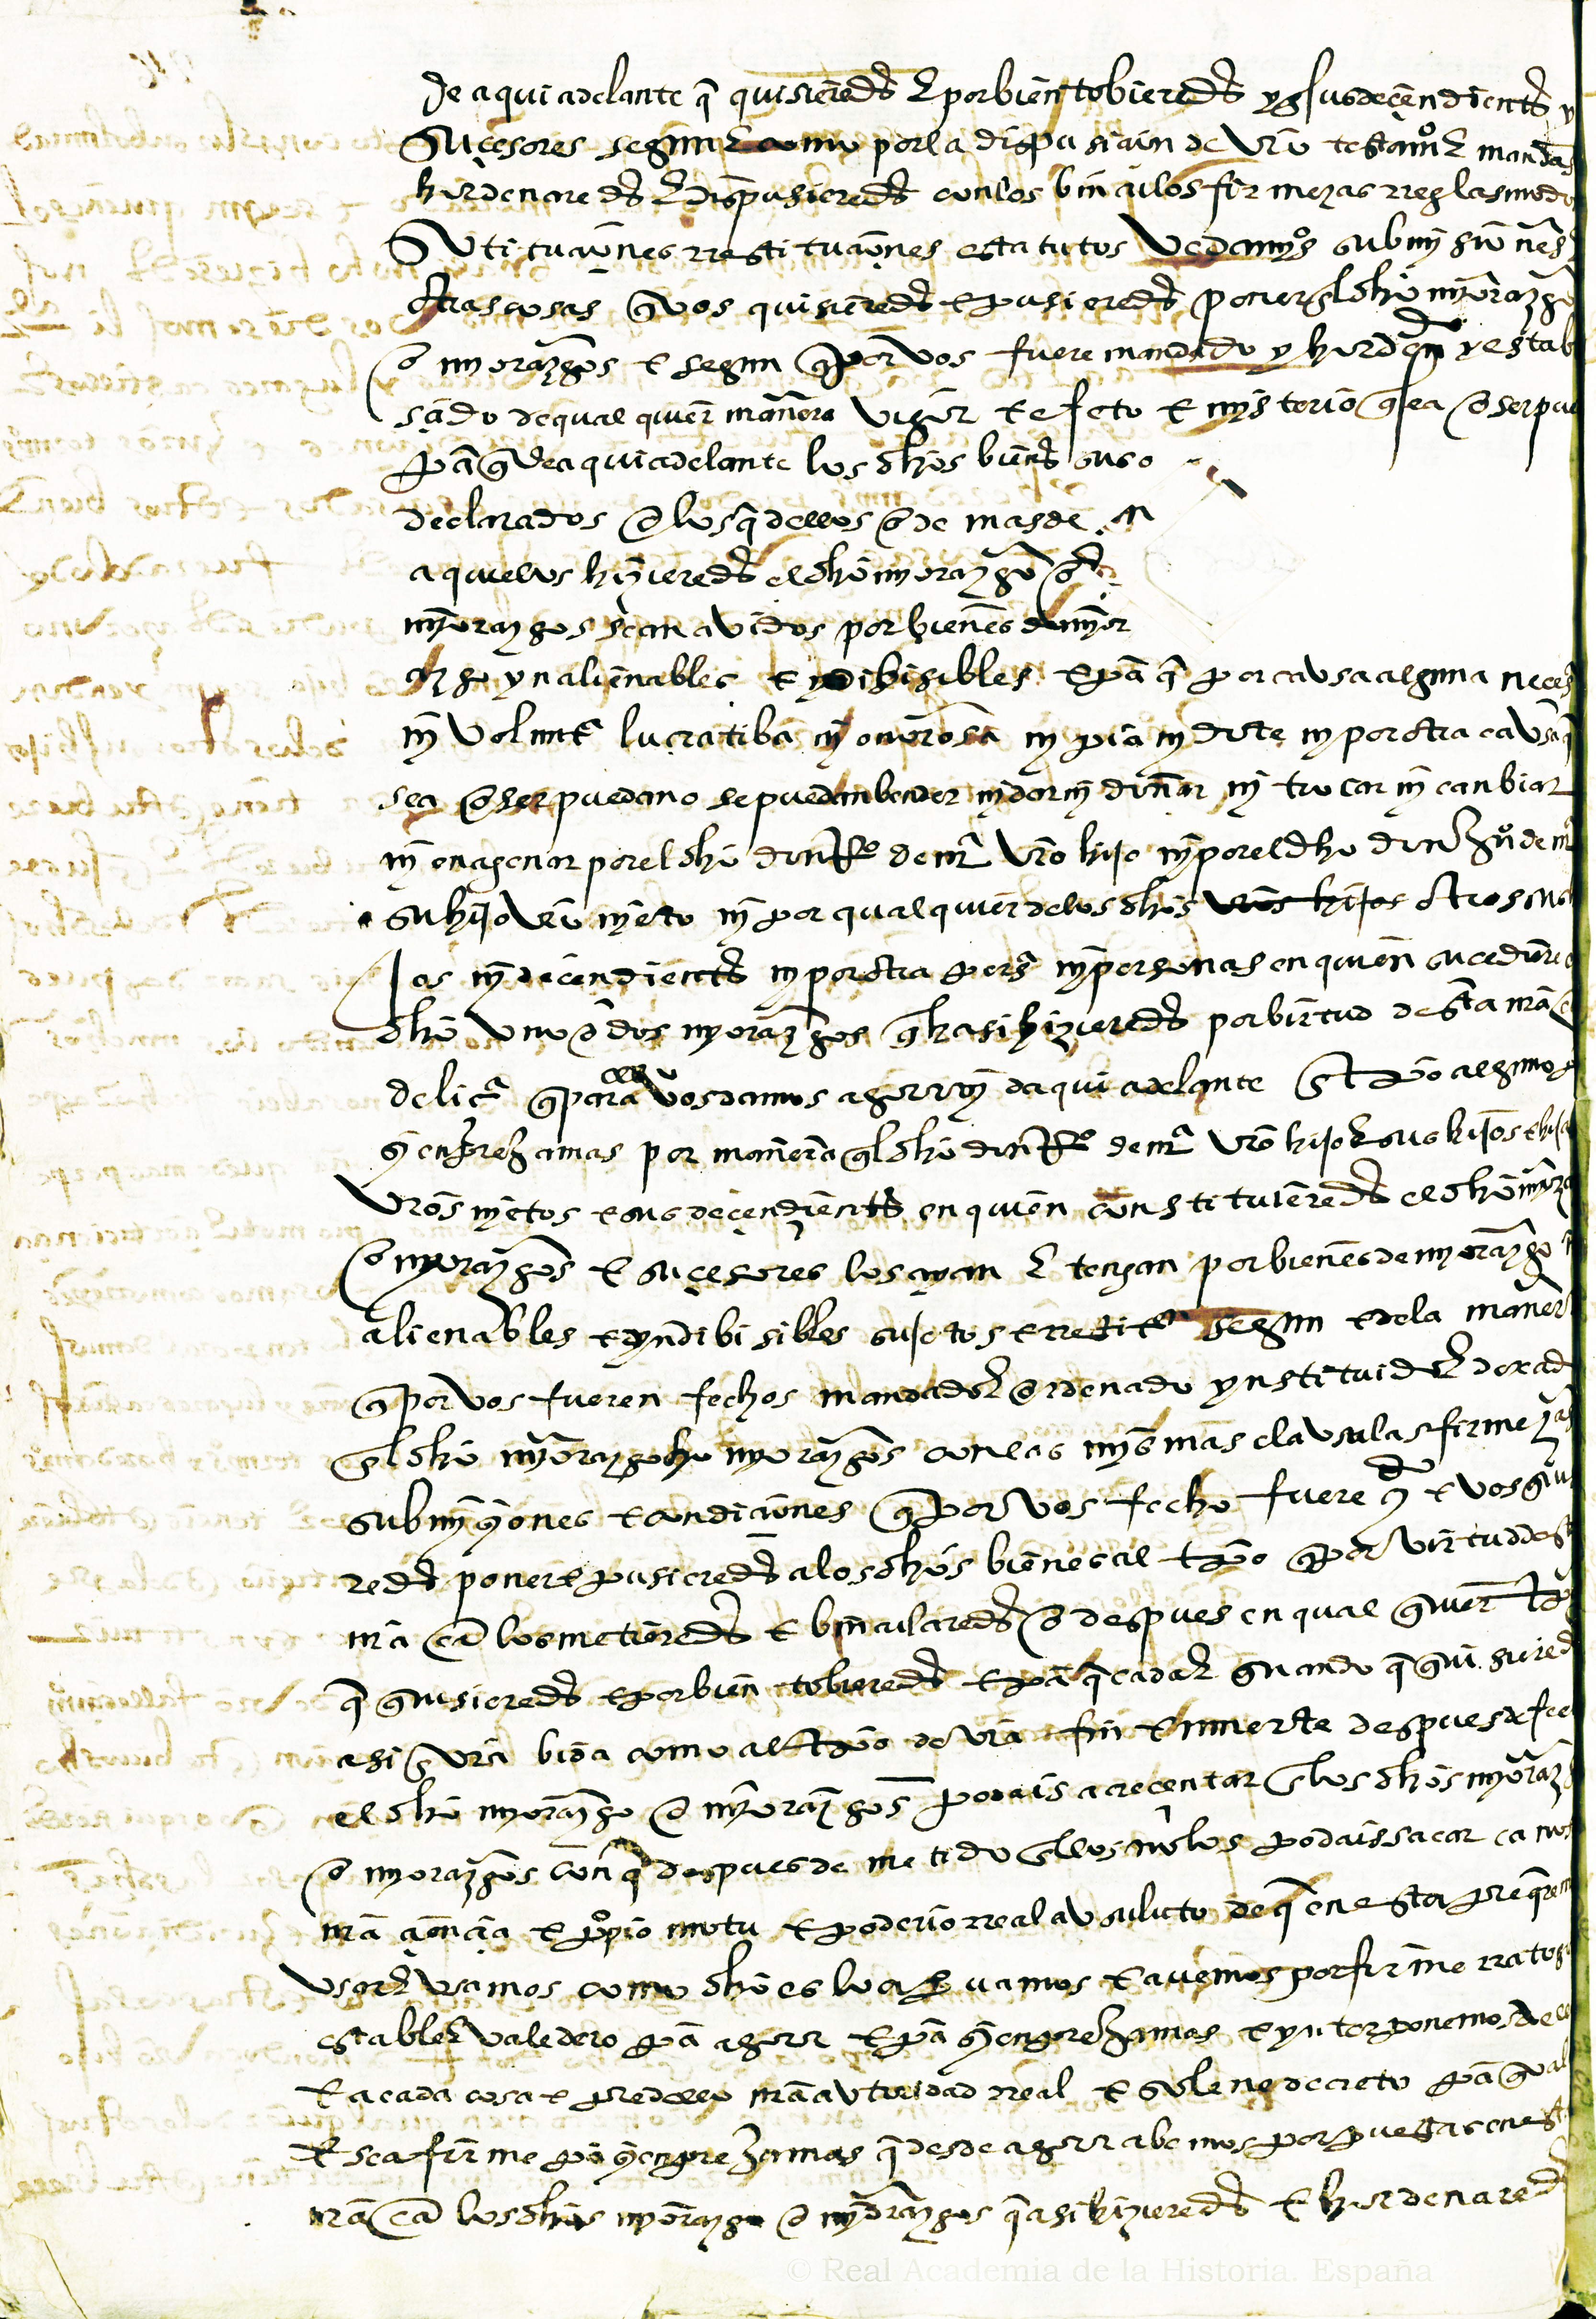 de aqui adelante q̃ quisieredes E por bien tobieredes y a sus deçendientes y
suçesores segund E como por la dispusiçion de vr̃o testamº E mandas
hordenaredes E dispusieredes con los binculos firmezas rreglas modo
sustituçiones rrestituçiones estatutos vedamyºs submysiones
otras cosas q̃ vos quisieredes e pusieredes poner el dhõ myorazgo
o myorazgos e segun q̃ por vos fuere mandado y hordenado y estab
sçido de qual quier manera vigor e efeto e mysterio q̃ sea o ser pue
pã q̃ de aqui adelante los dhõs bienes suso
declarados o los q̃ dellos o de mas de
aquellos hizieredes el dhõ myorazgo o
myorazgos sean avidos por bienes de myor
azgo ynalienables e yndibisibles e pã q̃ por causa alguna neçes
ny volunt.ª lucratiba ny onerosa ny pia ny dote ny por otra causa q̃
sea o ser pueda no se puedan bender ny dar ny donar ny trocar ny canbiar
ny enagenar por el dhõ don Rº de mª vr̃o hijo ny por el dho don Juº de mª
su hijo vr̃o nyeto ny por qual quier de los dhõs vr̃os hijos otros sus
jos ny deçendientes ny por otra persª ny personas en quien suçediere
dhõ uno o dos myorazgos q̃ asi hizieredes por birtud desta nr̃a cª
de liçª q̃ para ello vos damos agora y da qui adelante en tpõ alguno
y en prejamas por manera q̃l dhõ don Rº de mª vr̃o hijo E sus hijos e hijas
vr̃os nyetos e sus deçendientes en quien constituieredes el dhõ myorazgo
o myorazgos e suçesores los ayan E tengan por bienes de myorazgo yn
alienables e yndibisibles sujetos e rrestitª segun e de la manera
q̃ por vos fueren fechos mandado E ordenado ynstituido E dexado
el dhõ myorazgo o myorazgos con las mysmas clausulas firmezas
submysyones e condiçiones q̃ por vos fecho fuere y e vos quisie
redes poner e pusieredes a los dhõs bienes al tpõ q̃ por virtud desta
nr̃a cª los metieredes e bincularedes o despues en qual quier tpõ
q̃ quisieredes e por bien tobieredes e pã q̃ cada E quando q̃ quisiered
asi en vr̃a bida como al tpõ de vr̃a fin e muerte despues de fecho
el dhõ myorazgo o myorazgos podais acreçentar en los dhõs myoraz
o myorazgos con q̃ despues de metido en ellos no los podais sacar ca nos
nr̃a çiençia e pºpio motu e poderio rreal ausoluto de q̃ en esta pte q̃remos
usar E usamos como dhõ es lo aprouamos e auemos por firme rrato
estable E valedero pã agora e pã syenpre jamas e ynterponemos a ello
E a cada cosa e pte dello nr̃a autoridad rreal e solene decreto pã q̃ val
E sea firme pã syenpre jamas q̃ desde agora abemos por puestas en esta
nr̃a cª los dhõs myorazgo o myorazgos q̃ asi hizieredes E hordenared
© Real Academia de la Historia. España